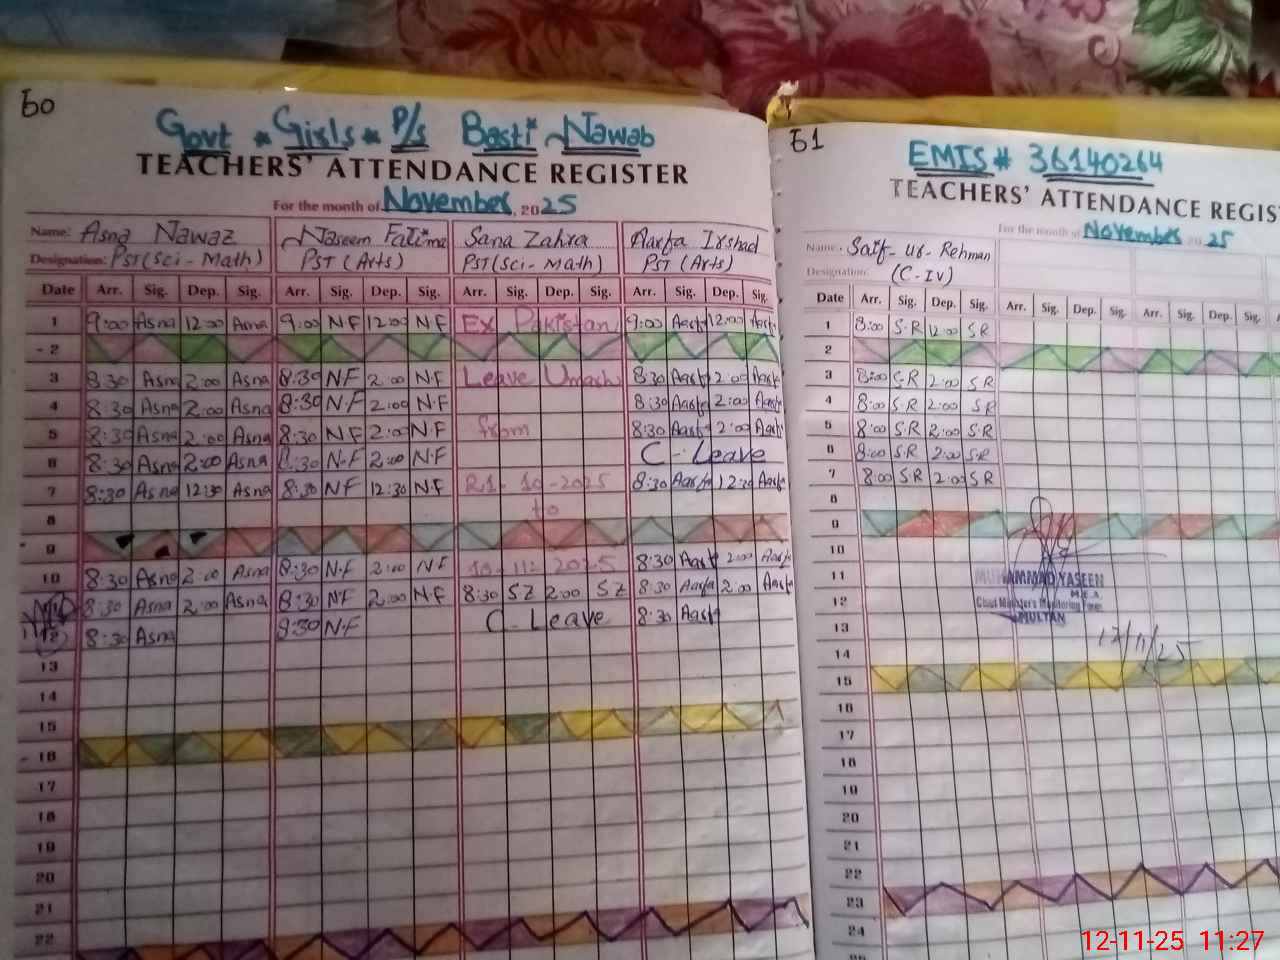 60
Govt * Girls * P/s Basti Nawab
TEACHERS' ATTENDANCE REGISTER
For the month of November, 2025
Name: Asna Nawaz Naseem Fatima Sana Zahra Aarfa Irshad
Designation: PST (Sci-Math) PST (Arts) PST (Sci-Math) PST (Arts)
Date Arr. Sig. Dep. Sig. Arr. Sig. Dep. Sig. Arr. Sig. Dep. Sig. Arr. Sig. Dep. Sig.
1 9:00 Asna 12:00 Asna 9:00 NF 12:00 NF Ex Pakistan 9:00 Aarfa 12:00 Aarfa
2
3 8:30 Asna 2:00 Asna 8:30 NF 2:00 N.F Leave 8:30 Aarfa 2:00 Aarfa
4 8:30 Asna 2:00 Asna 8:30 N.F 2:00 N.F 8:30 Aarfa 2:00 Aarfa
5 8:30 Asna 2:00 Asna 8:30 NF 2:00 N.F from 8:30 Aarfa 2:00 Aarfa
6 8:30 Asna 2:00 Asna 8:30 N.F 2:00 N.F C-Leave
7 8:30 Asna 12:30 Asna 8:30 NF 12:30 N.F 10-2025 8:30 Aarfa 12:30 Aarfa
8 to
9
10 8:30 Asna 2:00 Asna 8:30 N.F 2:00 NF 10-11-2025 8:30 Aarfa 2:00 Aarfa
8:30 Asna 2:00 Asna 8:30 NF 2:00 N.F 8:30 SZ 2:00 SZ 8:30 Aarfa 2:00 Aarfa
12 8:30 Asna 8:30 N.F C-Leave 8:30 Aarfa
13
14
15
16
17
18
19
20
21
22
61
EMIS # 36140264
TEACHERS' ATTENDANCE REGIS
For the month of November 2025
Name: Saif-ur-Rehman
Designation: (C-IV)
Date Arr. Sig. Dep. Sig. Arr. Sig. Dep. Sig. Arr. Sig. Dep. Sig.
1 8:00 S.R 12:00 SR
2
3 8:00 S.R 2:00 SR
4 8:00 S.R 2:00 SR
5 8:00 S.R 2:00 S.R
6 8:00 S.R 2:00 S.R
7 8:00 S.R 2:00 S.R
8
9
10
11
12
13
14
15
16
17
18
19
20
21
22
23
24
MUHAMMAD YASEEN
M.E.A
Chief Minister's Monitoring Force
MULTAN
12/11/25
12-11-25 11:27